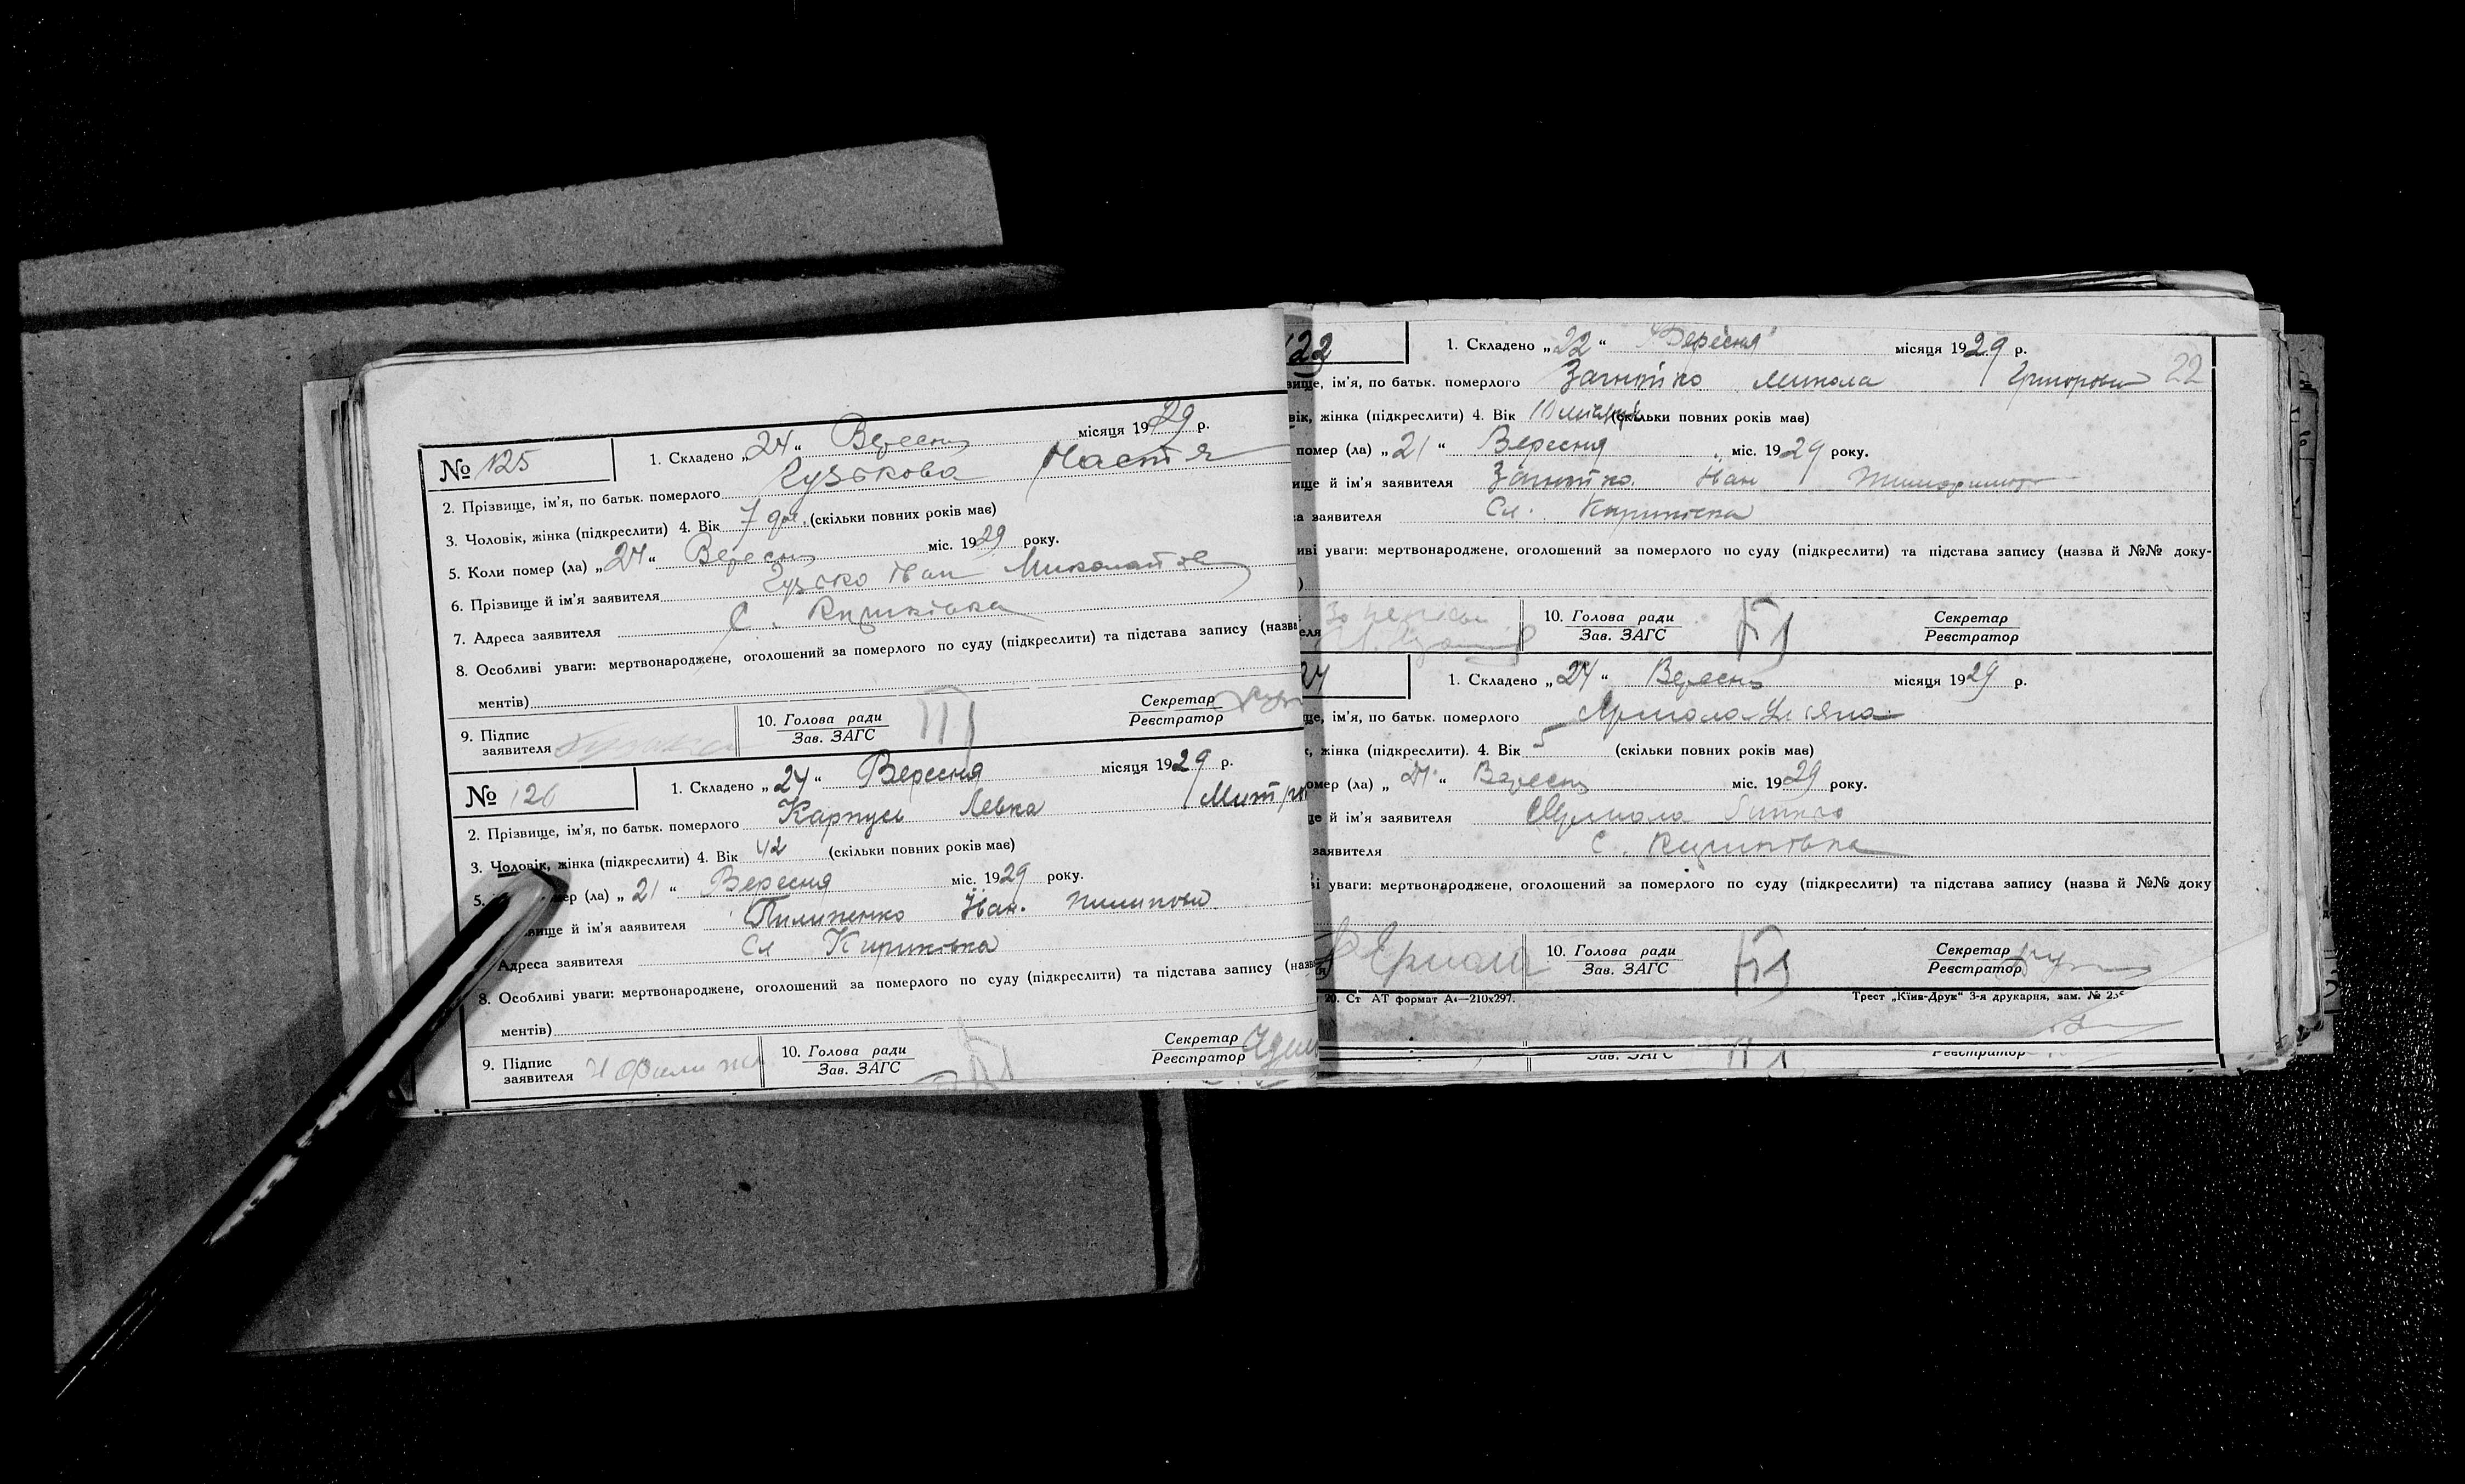 № 125
1. Складено „24“ Вересня місяця 1929 р.
2. Прізвище, ім'я, по батьк. померлого Гузькова Настя
3. Чоловік, жінка (підкреслити) 4. Вік 7 (скільки повних років має)
5. Коли помер (ла) „24“ Вересня міс. 1929 року.
6. Прізвище й ім'я заявителя Гузько Иван
7. Адреса заявителя С. Кириківка
8. Особливі уваги: мертвонароджене, оголошений за померлого по суду (підкреслити) та підстава запису (назва
ментів)
9. Підпис заявителя
10. Голова ради
Зав. ЗАГС
Секретар
Реєстратор
№ 126
1. Складено „24“ Вересня місяця 1929 р.
2. Прізвище, ім'я, по батьк. померлого Карпуш Левка
3. Чоловік, жінка (підкреслити) 4. Вік 42 (скільки повних років має)
5. мер (ла) „21“ Вересня міс. 1929 року.
вище й ім'я заявителя Пилипенко Іван.
Адреса заявителя Сл Кириківка
8. Особливі уваги: мертвонароджене, оголошений за померлого по суду (підкреслити) та підстава запису (назв
ментів)
9. Підпис заявителя
10. Голова ради
Зав. ЗАГС
Секретар
Реєстратор
22
1. Складено „22“ Вересня місяця 1929 р.
вище, ім'я, по батьк. померлого Загнітко Микола 22
вік, жінка (підкреслити) 4. Вік 10 (скільки повних років має)
помер (ла) „21“ Вересня міс. 1929 року.
ище й ім'я заявителя Загнітко Иван
а заявителя Сл. Кириківка
иві уваги: мертвонароджене, оголошений за померлого по суду (підкреслити) та підстава запису (назва й №№ доку-
)
еля
10. Голова ради
Зав. ЗАГС
Секретар
Реєстратор
24
1. Складено „24“ Вересня місяця 1929 р.
ще, ім'я, по батьк. померлого
к, жінка (підкреслити). 4. Вік 5 (скільки повних років має)
омер (ла) „21“ Вересня міс. 1929 року.
ще й ім'я заявителя
заявителя С. Кириківка
ві уваги: мертвонароджене, оголошений за померлого по суду (підкреслити) та підстава запису (назва й №№ доку
10. Голова ради
Зав. ЗАГС
Секретар
Реєстратор
29. Ст АТ формат А4—210х297.
Трест „Київ-Друк“ 3-я друкарня, зам. №
Зав. ЗАГС
Реєстратор